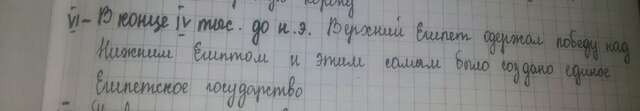 VI – В конце IV тыс. до н.э. Верхний Египет одержал победу над
Нижним Египтом и этим самым было создано единое
Египетское государство